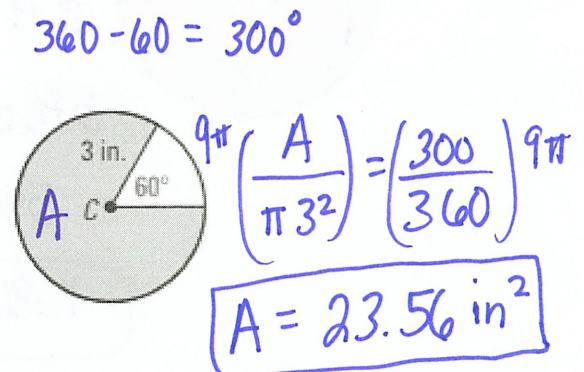 360 - 60 = 300°
3 in.
60°
A C
9π (A / π3²) = (300 / 360) 9π
A = 23.56 in²